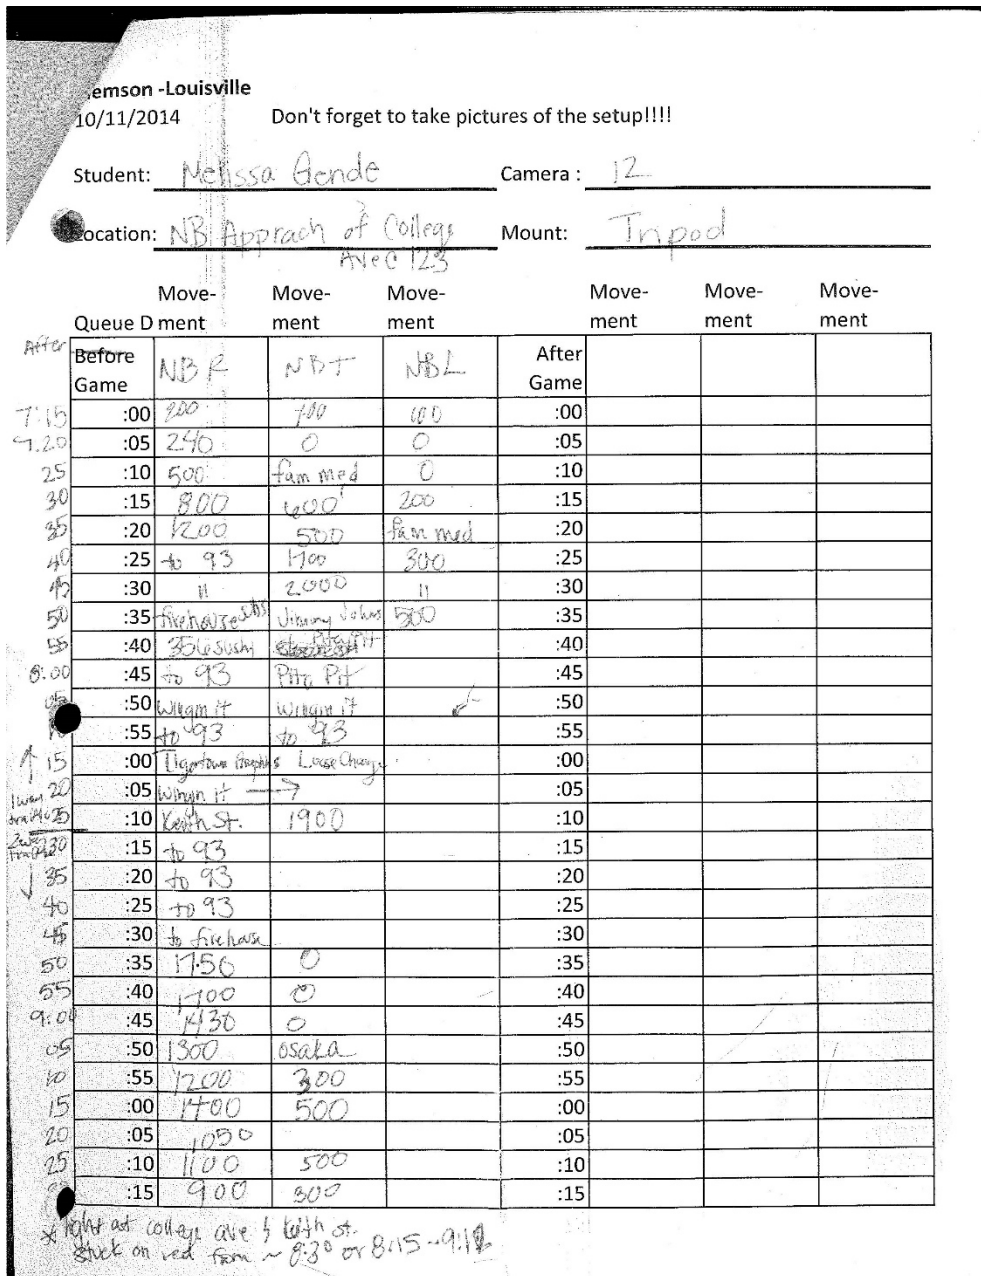 emson -Louisville
10/11/2014 Don't forget to take pictures of the setup!!!!
Student: Melissa Gende Camera : 12
Location: NB Apprach of College Mount: Tripod
Ave @ 123
Move- Move- Move- Move- Move- Move-
Queue D ment ment ment ment ment ment
After Before Game NBR NBT NBL After Game
7:15 :00 200 700 100 :00
7:20 :05 240 0 0 :05
25 :10 500 fam med 0 :10
30 :15 800 600 200 :15
35 :20 1200 500 fam med :20
40 :25 to 93 1700 300 :25
45 :30 " 2000 " :30
50 :35 firehouse subs Jimmy Johns 500 :35
55 :40 356 sushi Pita Pit :40
8:00 :45 to 93 Pita Pit :45
05 :50 Wingin it Wingin it :50
:55 to 93 to 93 :55
↑ 15 :00 Tigertown Graphics Loose Change :00
1 way traffic 20 :05 Wingin it → :05
25 :10 Keith St. 1900 :10
2 way traffic 30 :15 to 93 :15
↓ 35 :20 to 93 :20
40 :25 to 93 :25
45 :30 to firehouse :30
50 :35 1750 0 :35
55 :40 1700 0 :40
9:00 :45 1430 0 :45
05 :50 1300 osaka :50
10 :55 1200 300 :55
15 :00 1400 500 :00
20 :05 1050 :05
25 :10 1100 500 :10
:15 900 300 :15
* light at college ave & keith st.
stuck on red from ~ 8:30 or 8:15 - 9:12